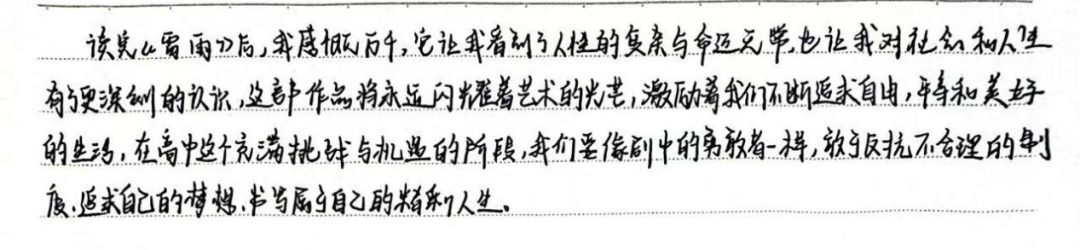 读完《雷雨》后,我感慨万千,它让我看到了人性的复杂与命运无常,也让我对社会和人生
有了更深刻的认识,这部作品将永远闪耀着艺术的光芒,激励着我们不断追求自由,平等和美好
的生活,在高中这个充满挑战与机遇的阶段,我们要像剧中的勇敢者一样,敢于反抗不合理的制
度,追求自己的梦想,书写属于自己的精彩人生。